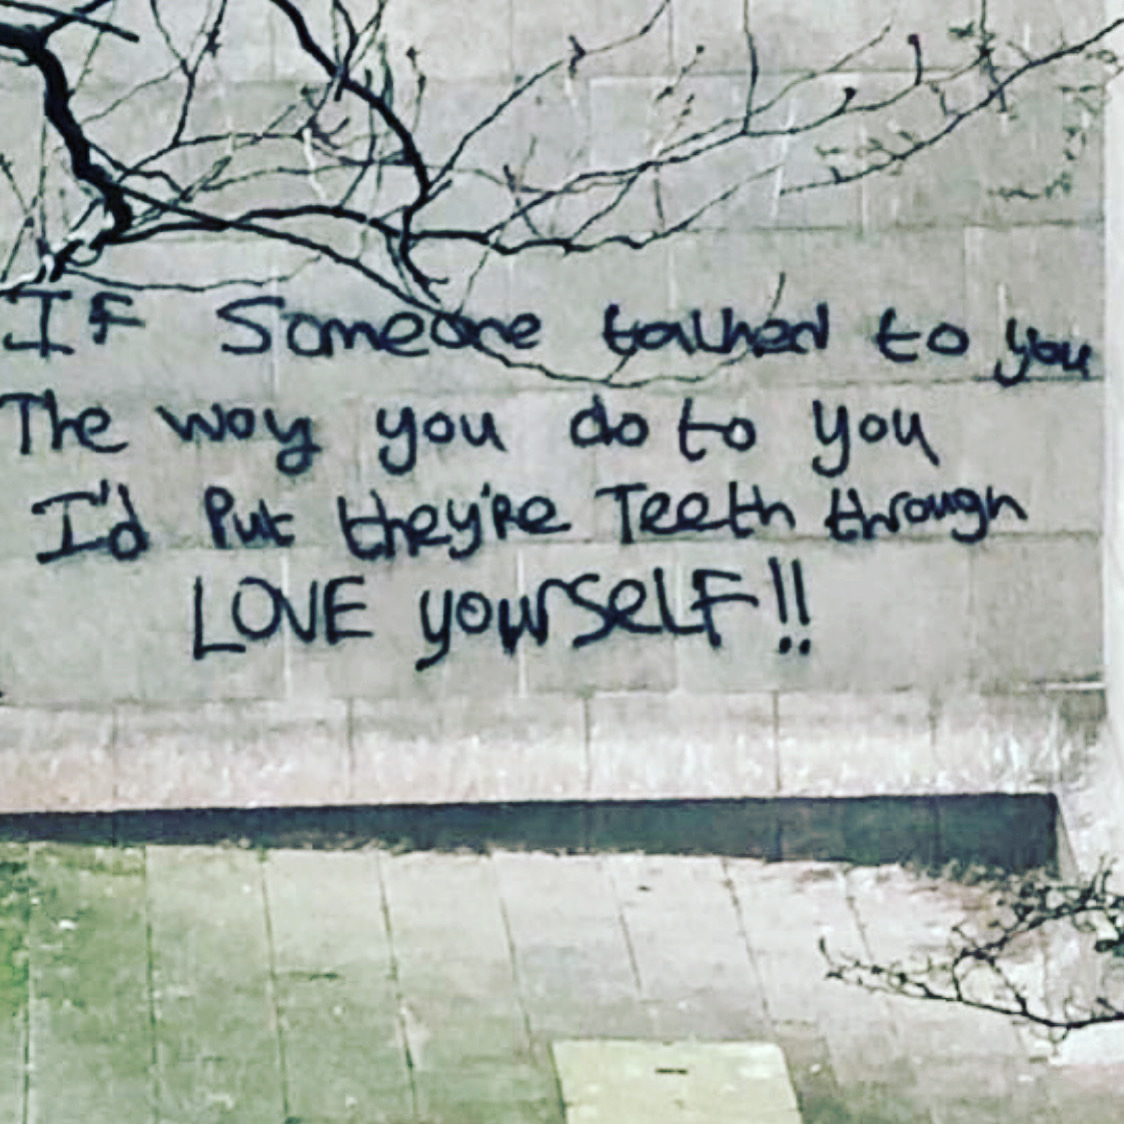 IF Someone talked to you
The way you do to you
I'd Put they're Teeth through
LOVE yourself!!